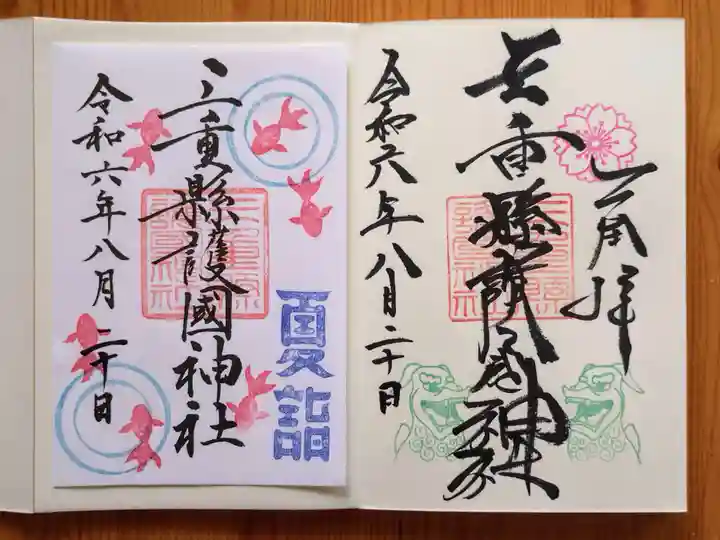 奉拝
三重縣護國神社
令和六年八月二十日
夏詣
三重縣護國神社
令和六年八月二十日